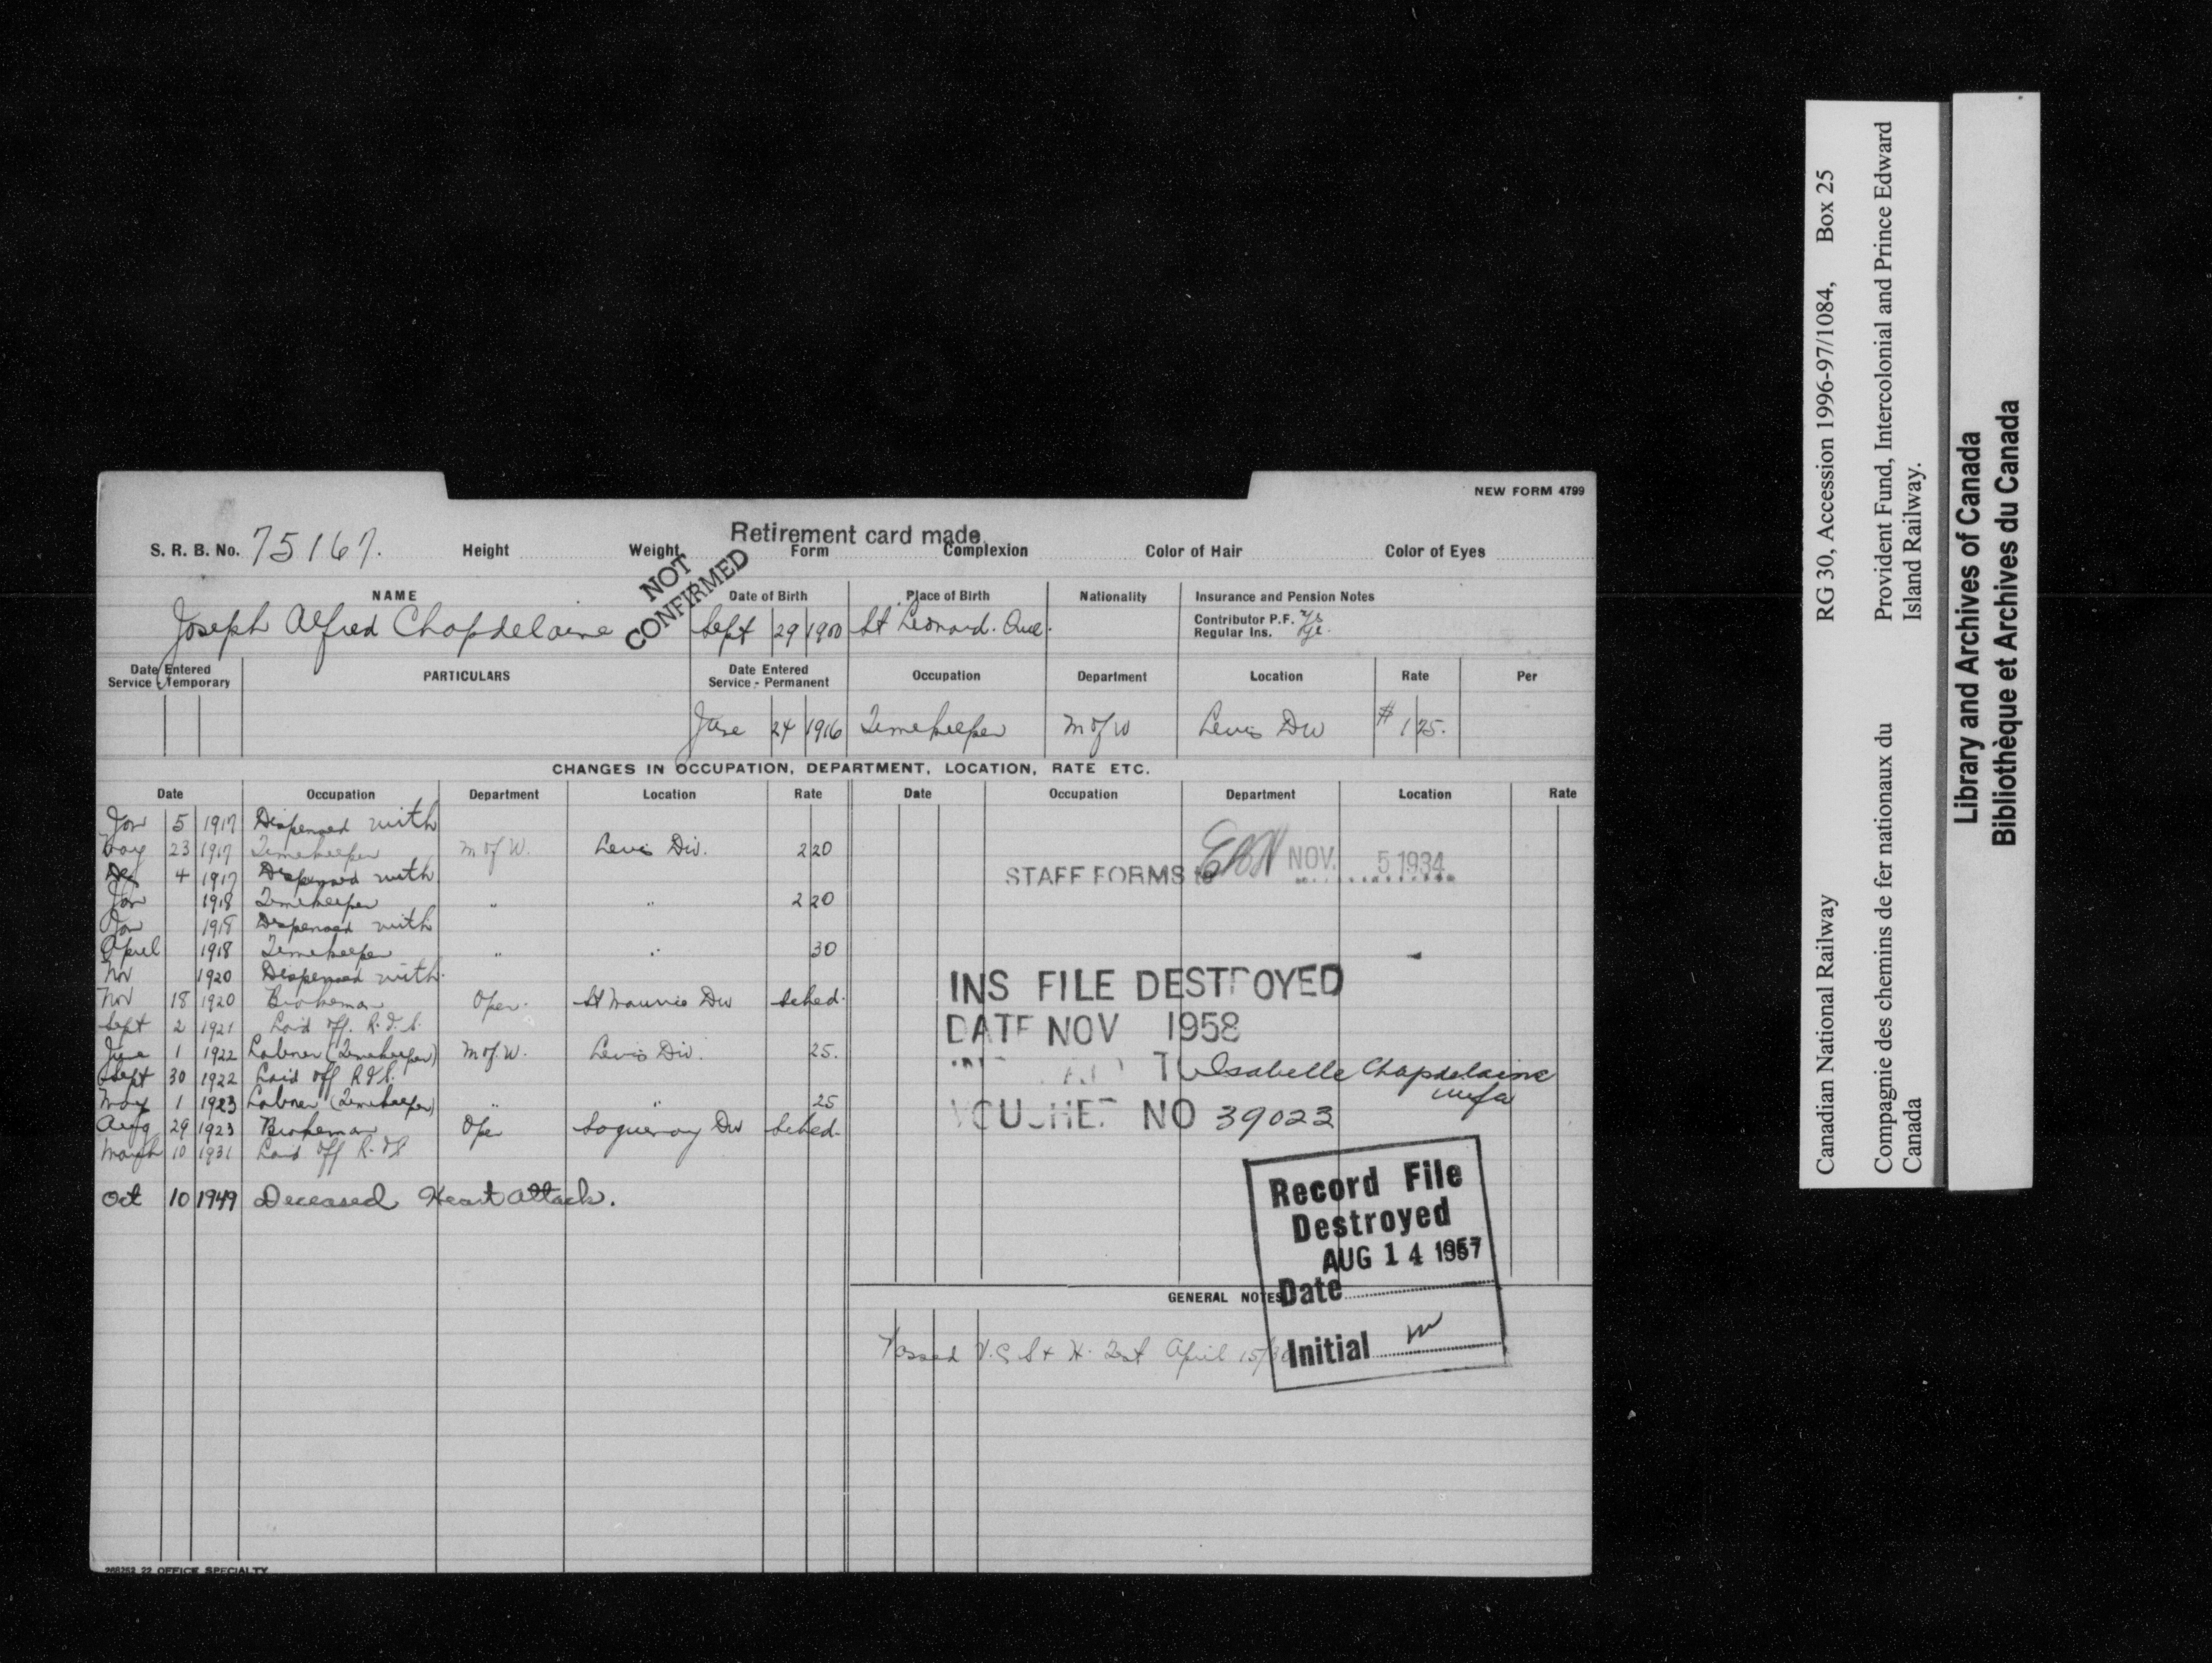 NEW FORM 4799
Retirement card made
S. R. B. No. 75167. Height Weight Form Complexion Color of Hair Color of Eyes
NOT CONFIRMED
NAME Date of Birth Place of Birth Nationality Insurance and Pension Notes
Joseph Alfred Chapdelaine Sept 29 1900 St Leonard. Que. Contributor P.F. Yes
Regular Ins.
Date Entered Service - Temporary PARTICULARS Date Entered Service - Permanent Occupation Department Location Rate Per
June 24 1916 Timekeeper M of W Levis Div $ 1 25.
CHANGES IN OCCUPATION, DEPARTMENT, LOCATION, RATE ETC.
Date Occupation Department Location Rate Date Occupation Department Location Rate
Jan 5 1917 Dispensed with
May 23 1917 Timekeeper M of W. Levis Div. 2 20
Dec 4 1917 Dispensed with
Jan 1918 Timekeeper " " 2 20
Jan 1918 Dispensed with
April 1918 Timekeeper " " 30
Nov 1920 Dispensed with
Nov 18 1920 Brakeman Oper. St Maurice Div Sched.
Sept 2 1921 Laid off. R.I.S.
June 1 1922 Laborer (Timekeeper) M of W. Levis Div. 25.
Sept 30 1922 Laid off R.I.S.
May 1 1923 Laborer (Timekeeper) " " 25
Aug 29 1923 Brakeman Ope Saguenay Div Sched.
March 10 1931 Laid off R.I.S
Oct 10 1949 Deceased Heart attack.
STAFF FORMS to NOV. 5 1934
INS FILE DESTROYED
DATE NOV 1958
TO Isabelle Chapdelaine
wife
VOUCHER NO 39023
Record File
Destroyed
AUG 14 1957
Date
Initial
GENERAL NOTES
Passed V.C.S & H. Test April 15/30
266262 22 OFFICE SPECIALTY
Canadian National Railway RG 30, Accession 1996-97/1084, Box 25
Compagnie des chemins de fer nationaux du Canada
Provident Fund, Intercolonial and Prince Edward Island Railway.
Library and Archives of Canada
Bibliothèque et Archives du Canada